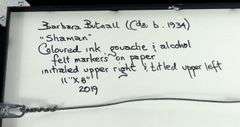 Barbara Bitnall (Cdn b. 1934)
"Shaman"
Coloured ink gouache & alcohol
felt markers on paper
initialed upper right & titled upper left
11" x 8"
2019